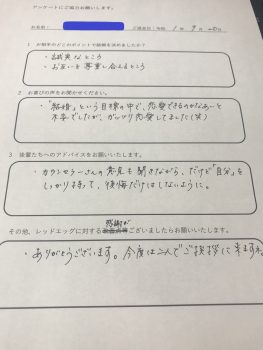 アンケートにご協力お願いします。
1 お相手のどこがポイントで結婚を決めましたか?
・誠実なところ
・お互いを尊重し合えるところ
2 お喜びの声をお聞かせください。
・「結婚」という目標の中で、恋愛できるのかなあーと
不安でしたが、がっつり恋愛してました(笑)
3 後輩たちへのアドバイスをお願いいたします。
・カウンセラーさんの意見を聞きながら、だけど「自分」を
しっかり持って、後悔だけはしないように。
感謝が
その他、レッドエッグに対するございましたらお願いいたします。
・ありがとうございます。今度は二人でご挨拶に来ますね